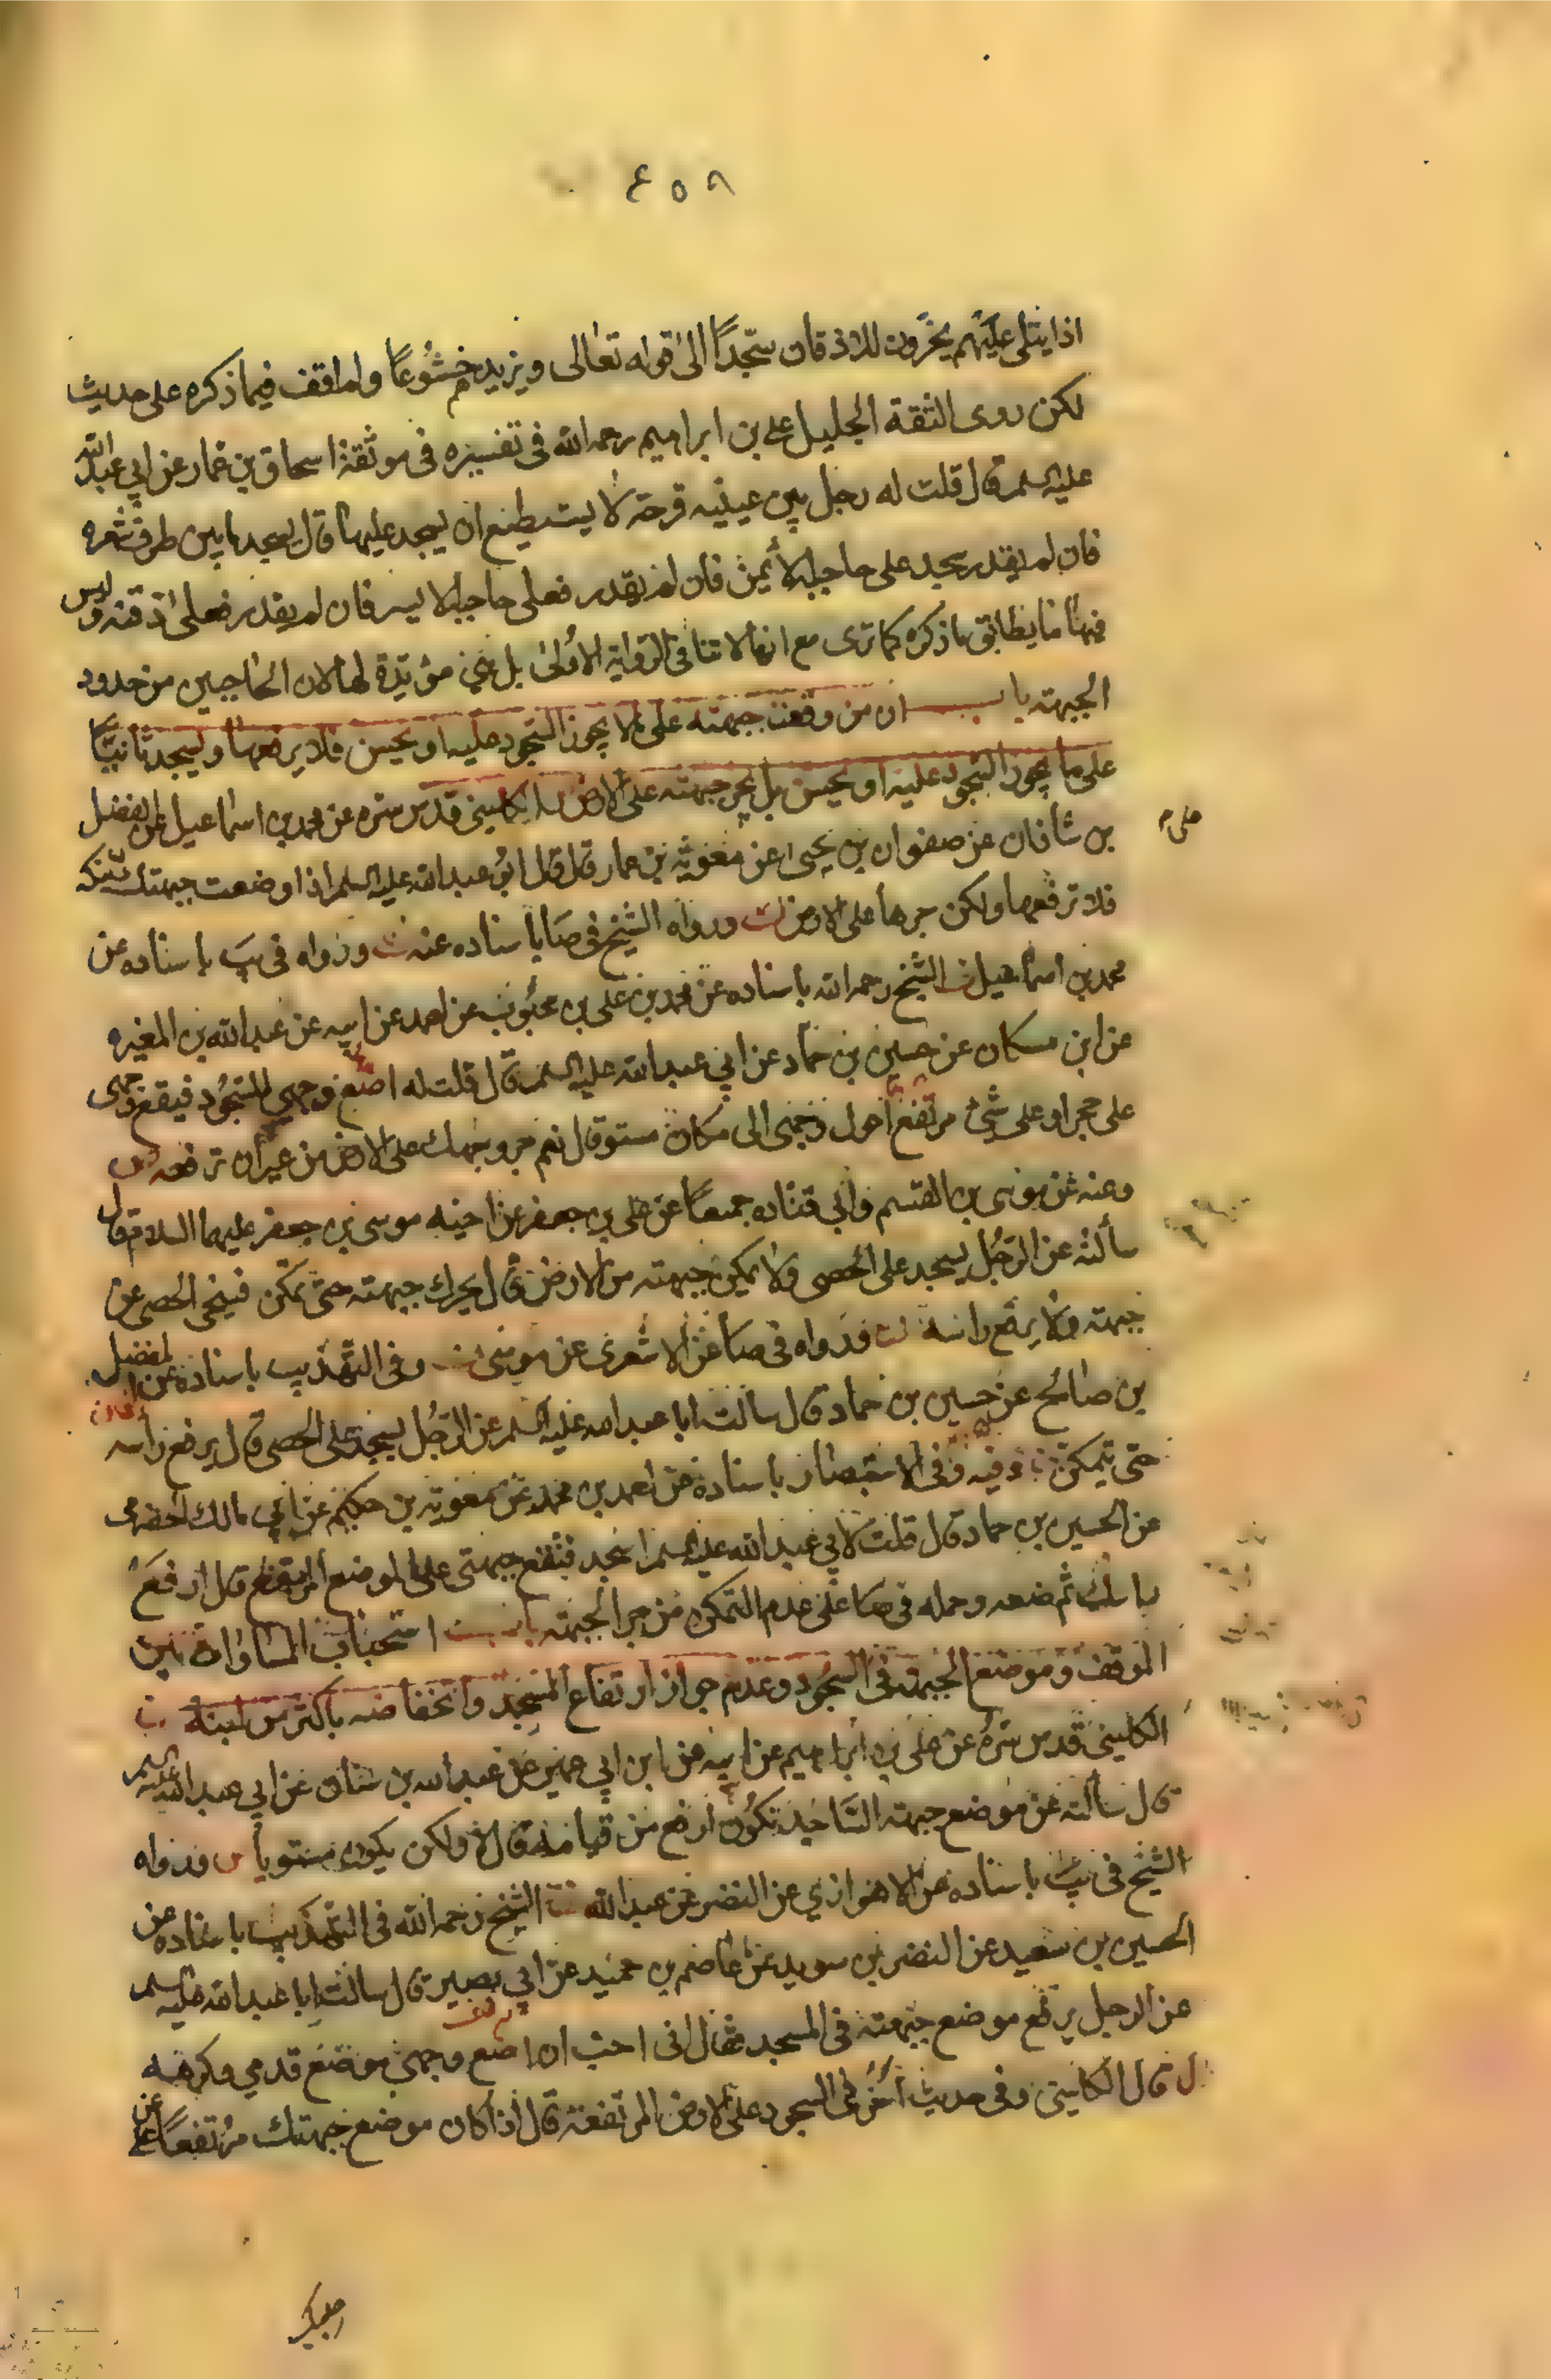 ٤٥٨
اذا يتلى عليهم يخرون للاذقان سجدًا الى قوله تعالى ويزيدهم خشوعًا ولم اقف فيما ذكره على حديث
لكن روى الثقة الجليل علي بن ابراهيم رحمه الله في تفسيره في موثقة اسحاق بن عمار عن ابي عبد الله
عليه السلم قال قلت له رجل بين عينيه قرحة لا يستطيع ان يسجد عليها قال يسجد ما بين طرف شعره
فان لم يقدر سجد على حاجبه الأيمن فان لم يقدر فعلى حاجبه الايسر فان لم يقدر فعلى ذقنه وليس
فيها ما يطابق ما ذكره كما ترى مع انها لا تنافي الرواية الاولى بل هي مؤيدة لها لان الحاجبين من حدود
الجبهة باب ان من وقعت جبهته على ما لا يجوز السجود عليه او يحسن فلا يرفعها وليسجد ثانيًا
على ما يجوز السجود عليه او يحسن بل يجر جبهته على الارض الكليني قدس سره عن محمد بن اسماعيل عن الفضل
على م
بن شاذان عن صفوان بن يحيى عن معوية بن عمار قال قال ابو عبد الله عليه السلم اذا وضعت جبهتك على نبكة
فلا ترفعها ولكن جرها على الارض ورواه الشيخ في صا باسناده عنه ورواه في يب باسناده عن
محمد بن اسماعيل الشيخ رحمه الله باسناده عن محمد بن علي بن محبوب عن احمد عن ابيه عن عبد الله بن المغيره
عن ابن مسكان عن حسين بن حماد عن ابي عبد الله عليه السلم قال قلت له اضع وجهي للسجود فيقع وجهي
على حجر او على شيء مرتفع احول وجهي الى مكان مستو قال نعم جر وجهك على الارض من غير ان ترفعه
وعنه عن موسى بن القسم وابي قتاده جميعًا عن علي بن جعفر عن اخيه موسى بن جعفر عليهما السلام قال
سألته عن الرجل يسجد على الحصى ولا يمكن جبهته من الارض قال يحرك جبهته حتى تمكن فينحي الحصى عن
جبهته ولا يرفع راسه ورواه في صا عن الاشعري عن موسى وفي التهذيب باسناده عن المفضل
بن صالح عن حسين بن حماد قال سالت ابا عبد الله عليه السلم عن الرجل يسجد على الحصى قال يرفع راسه
حتى يتمكن وفيه وفي الاستبصار باسناده عن احمد بن محمد عن معوية بن حكيم عن ابي مالك الحضرمي
عن الحسين بن حماد قال قلت لابي عبد الله عليه السلم اسجد فتقع جبهتي على الموضع المرتفع قال ارفع
راسك ثم ضعه وحمله في صا على عدم التمكن من جر الجبهة باب استحباب المساواة بين
الموقف وموضع الجبهة في السجود وعدم جواز ارتفاع المسجد وانخفاضه باكثر من لبنة
الكليني قدس سره عن علي بن ابراهيم عن ابيه عن ابن ابي عمير عن عبد الله بن سنان عن ابي عبد الله عليه السلم
قال سألته عن موضع جبهة الساجد تكون ارفع من قيامه قال لا ولكن يكون مستويا ورواه
الشيخ في يب باسناده عن الاهوازي عن النضر عن عبد الله الشيخ رحمه الله في التهذيب باسناده عن
الحسين بن سعيد عن النضر بن سويد عن عاصم بن حميد عن ابي بصير قال سالت ابا عبد الله عليه السلم
عن الرجل يرفع موضع جبهته في المسجد فقال اني احب ان اضع وجهي موضع قدمي وكرهه
قال الكليني وفي حديث آخر في السجود على الارض المرتفعة قال اذا كان موضع جبهتك مرتفعًا عن